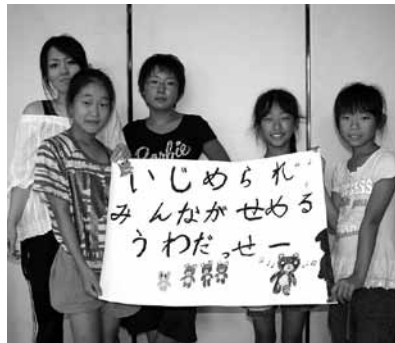 Barbie
いじめられ
みんながせめる
うわだっせー